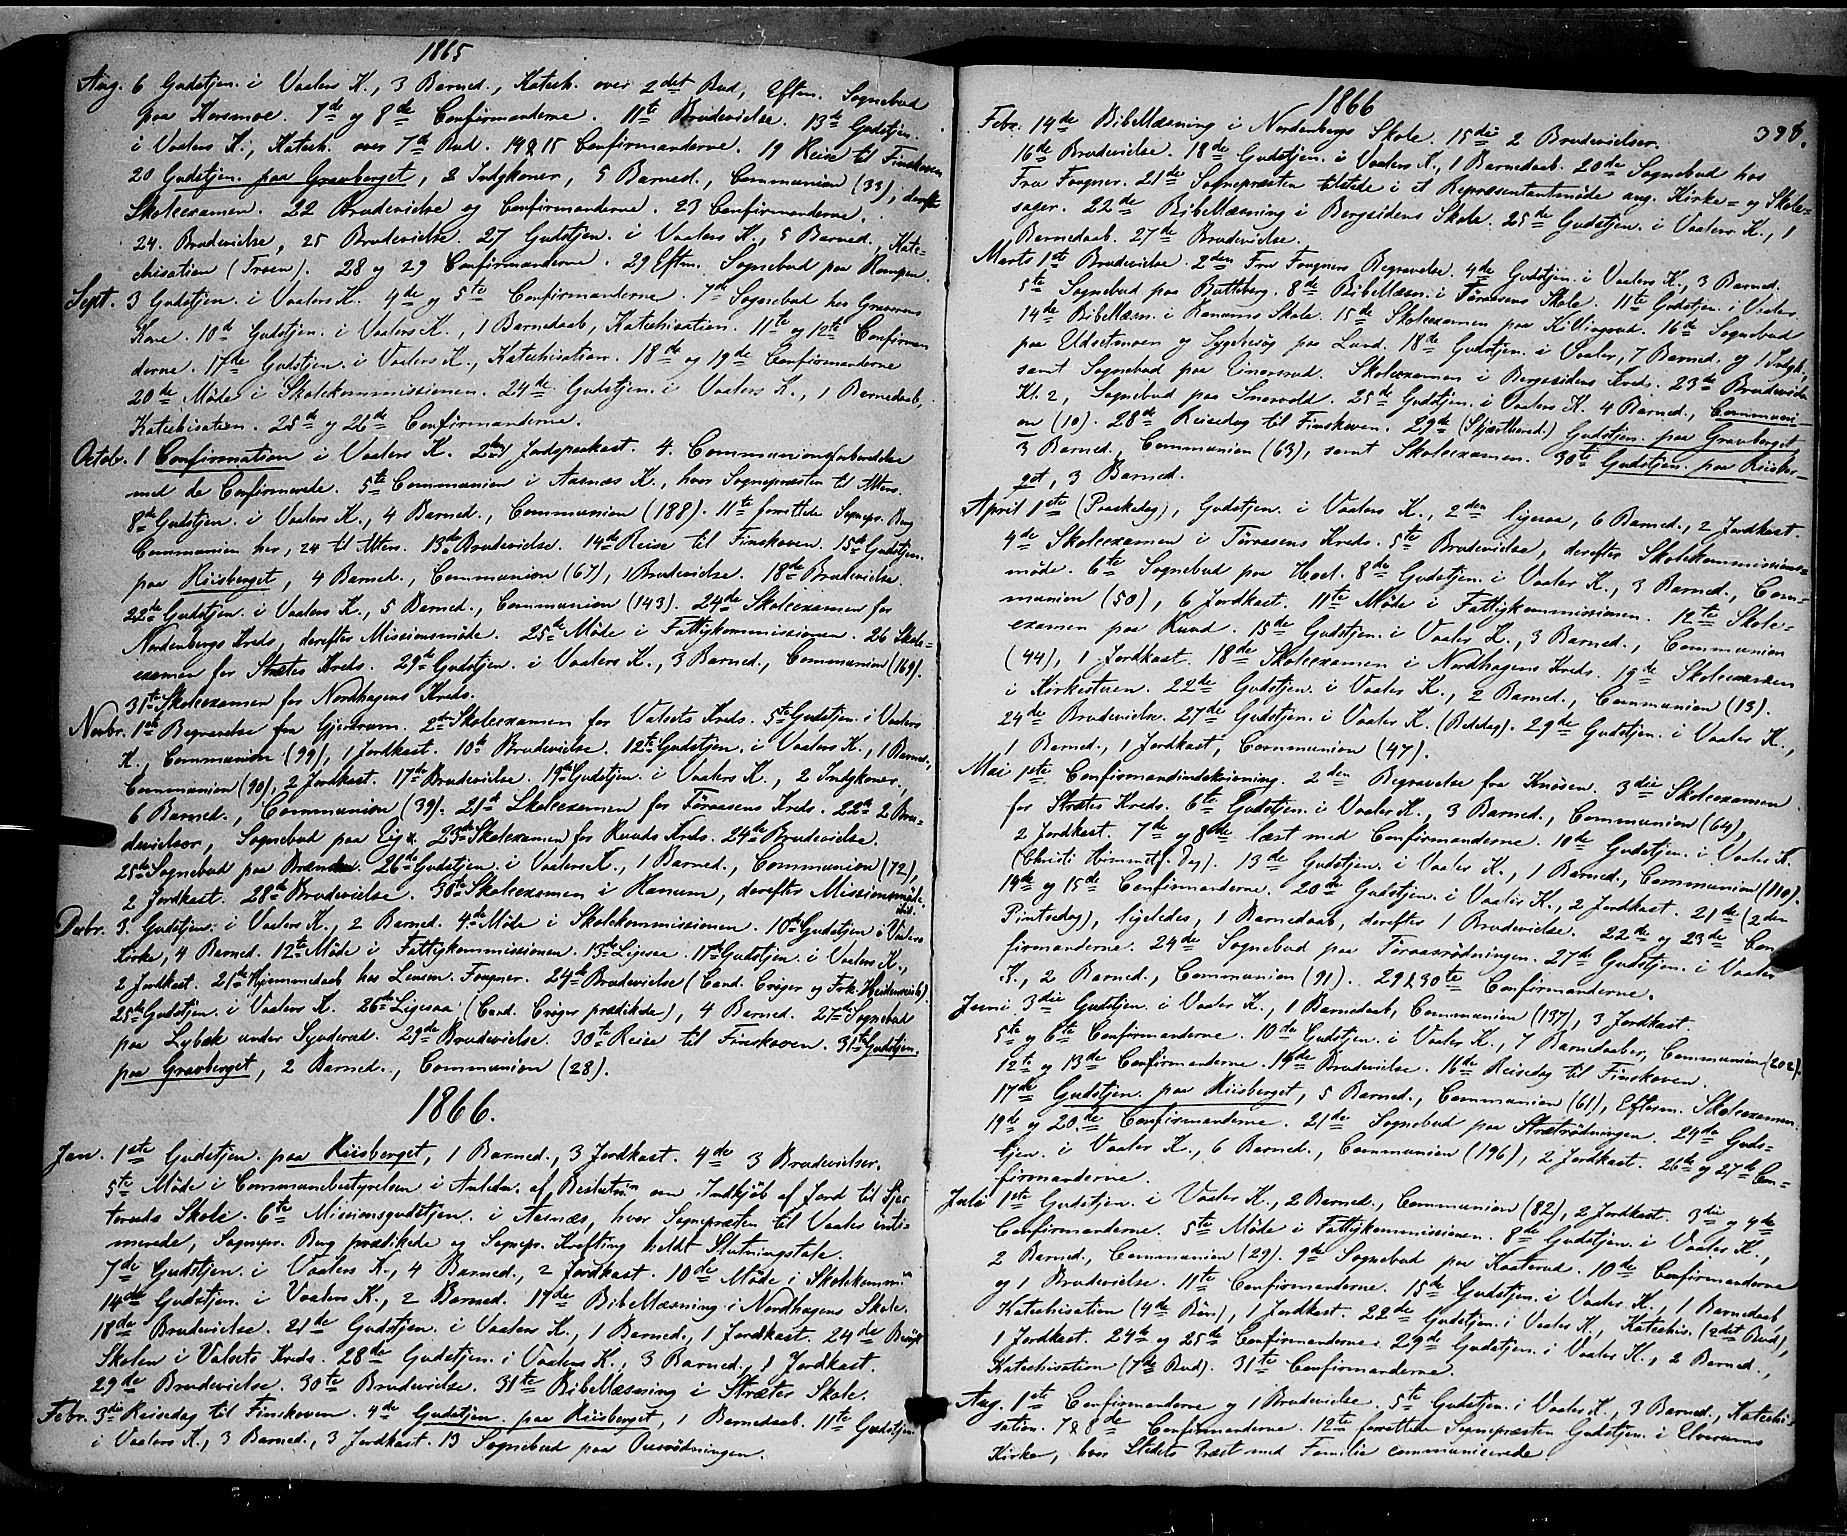 1865
Aug. 6 Gudstjen. i Vaalers K., 3 Barned., Katech. over 2det Bud, Eften. Sognebud
paa Korsmoe. 7de og 8de Confirmanderne. 11te Brudevielse. 13de Gudstjen.
i Vaalers K., Katech. over 7de Bud. 14 & 15 Confirmanderne. 19 Reise til Finskoven
20 Gudstjen. paa Gravberget, 2 Indgkoner, 5 Barned., Communion (33), derefter
Skoleexamen. 22 Brudevielse og Confirmanderne. 23 Confirmanderne.
24. Brudevielse, 25 Brudevielse. 27 Gudstjen. i Vaalers K., 5 Barned., Kate-
chisation (Troen). 28 og 29 Confirmanderne. 29 Eftm. Sognebud paa Rampen.
Sept. 3 Gudstjen. i Vaalers K. 4de og 5te Confirmanderne. 7de Sognebud hos Graverens
Kone. 10de Gudstjen. i Vaalers K., 1 Barnedaab, Katechisation. 11te og 12te Confirman
derne. 17de Gudstjen. i Vaalers K., Katechisation. 18de og 19de Confirmanderne
20de Møde i Skolekommissionen. 24de Gudstjen. i Vaalers K., 1 Barnedaab,
Katechisation. 25de og 26de Confirmanderne.
Octob. 1 Confirmation i Vaalers K. 2den Jordpaakast. 4. Communionsforberedelse
med de Confirmerede. 5te Communion i Aasnæs K., hvor Sognepræsten til Alters.
8de Gudstjen. i Vaalers K., 4 Barned., Communion (188). 11te forrettede Sognepr. Berg
Communion her, 24 til Alters. 13de Brudevielse. 14de Reise til Finskoven. 15de Gudstjen.
paa Riisberget, 4 Barned., Communion (67), 1 Brudevielse. 18de Brudevielse.
22de Gudstjen. i Vaalers K., 5 Barned., Communion (143). 24de Skoleexamen for
Nordenbergs Kreds, derefter Missionsmøde. 25de Møde i Fattigkommissionen. 26 Skole-
examen for Strætes Kreds. 29de Gudstjen. i Vaalers K., 3 Barned., Communion (169).
31te Skoleexamen for Nordhagens Kreds.
Novbr. 1ste Begravelse fra Gjerdrum. 2den Skoleexamen for Valsets Kreds. 5te Gudstjen. i Vaalers
K., Communion (99), 1 Jordkast. 10de Brudevielse. 12te Gudstjen. i Vaalers K., 1 Barned.,
Communion (90), 2 Jordkast. 17de Brudevielse. 19de Gudstjen. i Vaalers K., 2 Indgkoner,
6 Barned., Communion (39). 21de Skoleexamen for Føraasens Kreds. 22de 2 Bru-
devielser, Sognebud paa 23de Skoleexamen for Ruuds Kreds. 24de Brudevielse.
25de Sognebud paa Branden. 26de Gudstjen. i Vaalers K., 1 Barned., Communion (72),
2 Jordkast. 28de Brudevielse. 30te Skoleexamen i Hanum, derefter Missionsmøde
ibid.
Decbr. 3. Gudstjen. i Vaalers K., 2 Barned. 4de Møde i Skolekommissionen. 10de Gudstjen. i Vaalers
Kirke, 4 Barned. 12te Møde i Fattigkommissionen. 13de Ligesaa. 17de Gudstjen. i Vaalers K.,
2 Jordkast. 21de Hjemmedaab hos Lensm. Fougner. 24de Brudevielse (Cand. Crøger og Frk. Heidenreich).
25de Gudstjen. i Vaalers K. 26de Ligesaa (Cand. Crøger prædikede), 4 Barned. 27de Sognebud
paa Lybæk under Synderud. 29de Brudevielse. 30te Reise til Finskoven. 31te Gudstjen.
paa Gravberget, 2 Barned., Communion (28).
1866.
Jan. 1ste Gudstjen. paa Riisberget, 1 Barned., 3 Jordkast. 4de 3 Brudevielser.
5te Møde i Communebestyrelsen i Anledn. af Beslutn. om Indkjøb af Jord til Sjer
teruds Skole. 6te Missionsgudstjen. i Aasnæs, hvor Sognepræsten til Vaaler inti-
merede, Sognepr. Berg prædikede og Sognepr. Krefting holdt Slutningstale.
7de Gudstjen. i Vaalers K., 4 Barned., 2 Jordkast. 10de Møde i Skolekomm.
14de Gudstjen. i Vaalers K., 2 Barned. 17de Bibellæsning i Nordhagens Skole.
18de Brudevielse. 21de Gudstjen. i Vaalers K., 1 Barned., 1 Jordkast. 24de Besøgt
Skolen i Valsets Kreds. 28de Gudstjen. i Vaalers K., 3 Barned., 1 Jordkast.
29de Brudevielse. 30te Brudevielse. 31te Bibellæsning i Strætes Skole.
Febr. 3die Reisedag til Finskoven. 4de Gudstjen. paa Riisberget, 1 Barnedaab. 11te Gudstjen.
i Vaalers K., 3 Barned., 3 Jordkast. 13 Sognebud paa Ousrødningen.
1866
398.
Febr. 14de Bibellæsning i Nordenbergs Skole. 15de 2 Brudevielser.
16de Brudevielse. 18de Gudstjen. i Vaalers K., 1 Barnedaab. 20de Sognebud hos
Fru Fougner. 21de Sognepræsten tilstede i et Repræsentantmøde ang. Kirke- og Skole-
sager. 22de Bibellæsning i Bergsidens Skole. 25de Gudstjen. i Vaalers K., 1
Barnedaab. 27de Brudevielse.
Marts 1ste Brudevielse. 2den Fru Fougners Begravelse. 4de Gudstjen. i Vaalers K., 3 Barned.
5te Sognebud paa Butteberg. 8de Bibellæsn. i Føraasens Skole. 11te Gudstjen. i Vaaler.
14de Bibellæsn. i Hanums Skole. 15de Skoleexamen paa Killingsrud. 16de Sognebud
paa Udsetmoen og Sygebesøg paa Lund. 18de Gudstjen. i Vaaler, 7 Barned. og 1 Indgk.,
samt Sognebud paa Einersrud. Skoleexamen i Bergesidens Kreds. 23de Brudevielse
Kl. 2, Sognebud paa Snervold. 25de Gudstjen. i Vaalers K. 4 Barned., Communi-
on (10). 28de Reisedag til Finskoven. 29de (Skjærthorsd.) Gudstjen. paa Gravberget,
3 Barned., Communion (63), samt Skoleexamen. 30te Gudstjen. paa Riisber-
get, 3 Barned.
April 1ste (Paaskedag), Gudstjen. i Vaalers K., 2den ligesaa, 6 Barned., 2 Jordkast.
4de Skoleexamen i Føraasens Kreds. 5te Brudevielse, derefter Skolekommissions-
møde. 6te Sognebud paa Hoel. 8de Gudstjen. i Vaaler K., 3 Barned., Com-
munion (50), 6 Jordkast. 11te Møde i Fattigkommissionen. 12te Skole-
examen paa Ruud. 15de Gudstjen. i Vaaler K., 3 Barned., Communion
(44), 1 Jordkast. 18de Skoleexamen i Nordhagens Kreds. 19de Skoleexamen
i Kirkestuen. 22de Gudstjen. i Vaaler K., 2 Barned., Communion (13).
24de Brudevielse. 27de Gudstjen. i Vaaler K. (Bededag). 29de Gudstjen. i Vaaler K.,
1 Barned., 1 Jordkast, Communion (47).
Mai 1ste Confirmandindskrivning. 2den Begravelse fra Knusen. 3die Skoleexamen
for Strætes Kreds. 6te Gudstjen. i Vaaler K., 3 Barned., Communion (64),
2 Jordkast. 7de og 8de læst med Confirmanderne. 10de Gudstjen. i Vaaler K.
(Christi Himmelf. Dag). 13de Gudstjen. i Vaaler K., 1 Barned., Communion (110).
14de og 15de Confirmanderne. 20de Gudstjen. i Vaaler K., 2 Jordkast. 21de (2den
Pintsedag), ligeledes, 1 Barnedaab, derefter 1 Brudevielse. 22de og 23de Con-
firmanderne. 24de Sognebud paa Føraasrødningen. 27de Gudstjen. i Vaaler
K., 2 Barned., Communion (91). 29 & 30te Confirmanderne.
Juni 3die Gudstjen. i Vaaler K., 1 Barnedaab, Communion (137), 3 Jordkast.
5te og 6te Confirmanderne. 10de Gudstjen. i Vaaler K., 7 Barnedaaber, Communion (202).
12te og 13de Confirmanderne. 14de Brudevielse. 16de Reisedag til Finskoven.
17de Gudstjen. paa Riisberget, 5 Barned., Communion (61), Efterm. Skoleexamen.
19de og 20de Confirmanderne. 21de Sognebud paa Strætrødningen. 24de Guds-
tjen. i Vaaler K., 6 Barned., Communion (196), 2 Jordkast. 26de og 27de Con-
firmanderne.
Juli 1ste Gudstjen. i Vaaler K., 2 Barned., Communion (82), 2 Jordkast. 3die og 4de
Confirmanderne. 5te Møde i Fattigkommissionen. 8de Gudstjen. i Vaaler K.,
2 Barned., Communion (29). 9de Sognebud paa Kaaterud. 10de Confirmanderne
og 1 Brudevielse. 11te Confirmanderne. 15de Gudstjen. i Vaaler K., 1 Barnedaab,
Katechisation (4de Bøn), 1 Jordkast. 22de Gudstjen. i Vaaler K., Katechis. (2det Bud),
1 Jordkast. 24de og 25de Confirmanderne. 29de Gudstjen. i Vaaler K., 2 Barned.,
Katechisation (7de Bud). 31te Confirmanderne.
Aug. 1ste Confirmanderne og 1 Brudevielse. 5te Gudstjen. i Vaaler K., 3 Barned., Katechi-
sation. 7 & 8de Confirmanderne. 12te forrettede Sognepræsten Gudstjen. i Elverums
Kirke, hvor Stedets Præst med Familie communicerede.